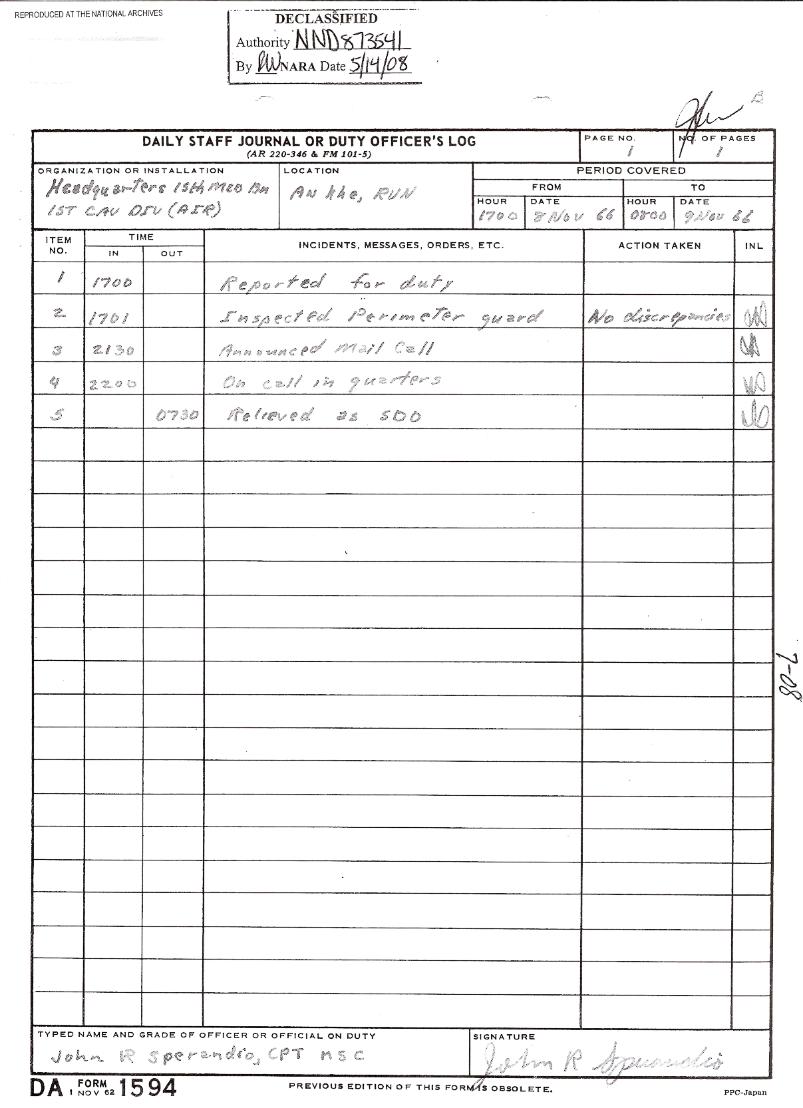 REPRODUCED AT THE NATIONAL ARCHIVES
DECLASSIFIED
Authority NND873541
By NARA Date 5/14/08
B
DAILY STAFF JOURNAL OR DUTY OFFICER'S LOG
(AR 220-346 & FM 101-5)
PAGE NO.
1
NO. OF PAGES
1
ORGANIZATION OR INSTALLATION
Headquarters 15th MED Bn
1ST CAV DIV (AIR)
LOCATION
An Khe, RVN
PERIOD COVERED
FROM TO
HOUR DATE HOUR DATE
1700 8 Nov 66 0800 9 Nov 66
ITEM NO. TIME IN OUT INCIDENTS, MESSAGES, ORDERS, ETC. ACTION TAKEN INL
1 1700 Reported for duty
2 1701 Inspected Perimeter guard No discrepancies
3 2130 Announced Mail Call
4 2200 On call in quarters
5 0730 Relieved as SDO
7-08
TYPED NAME AND GRADE OF OFFICER OR OFFICIAL ON DUTY
John R Sperandio, CPT MSC
SIGNATURE
John R Sperandio
DA FORM 1 NOV 62 1594
PREVIOUS EDITION OF THIS FORM IS OBSOLETE.
PPC-Japan